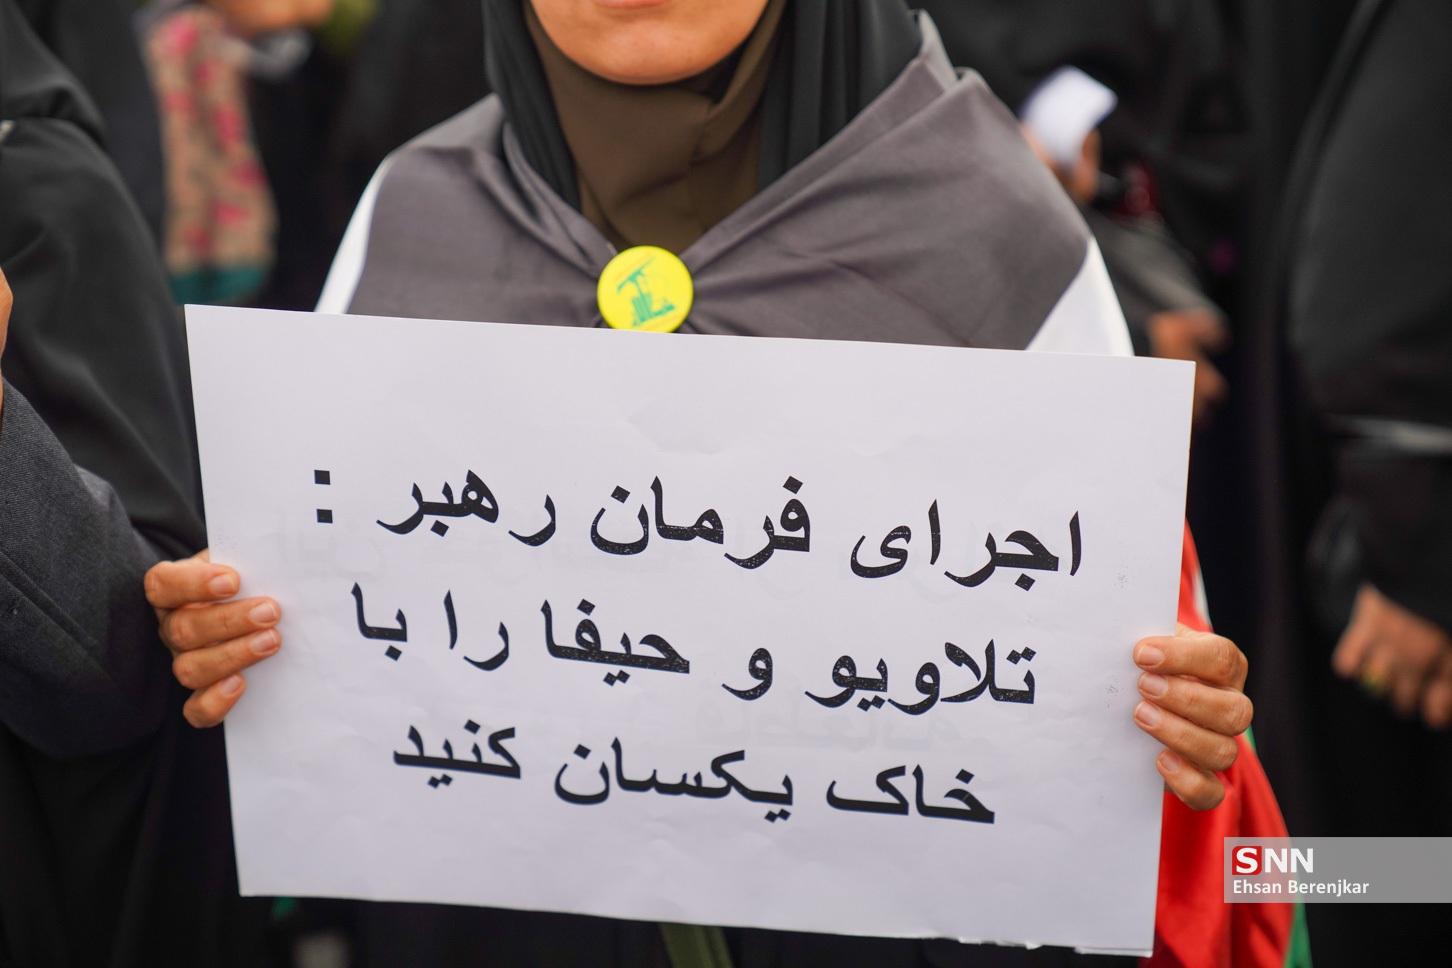 اجرای فرمان رهبر :
تلاویو و حیفا را با
خاک یکسان کنید
SNN
Ehsan Berenjkar